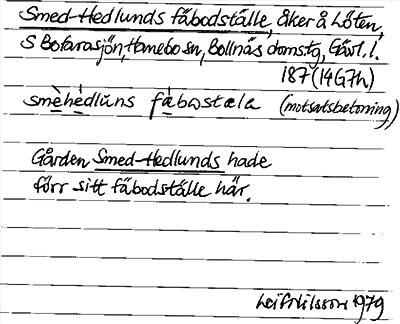 Smed-Hedlunds fäbodställe, åker å Löten,
S Bofarasjön, Hanebo sn, Bollnäs domstg, Gävl. l.
187 (14G7h)
smèhédlùns fàbωstæla (motsatsbetoning)
Gården Smed-Hedlunds hade
förr sitt fäbodställe här.
Leif Nilsson 1979